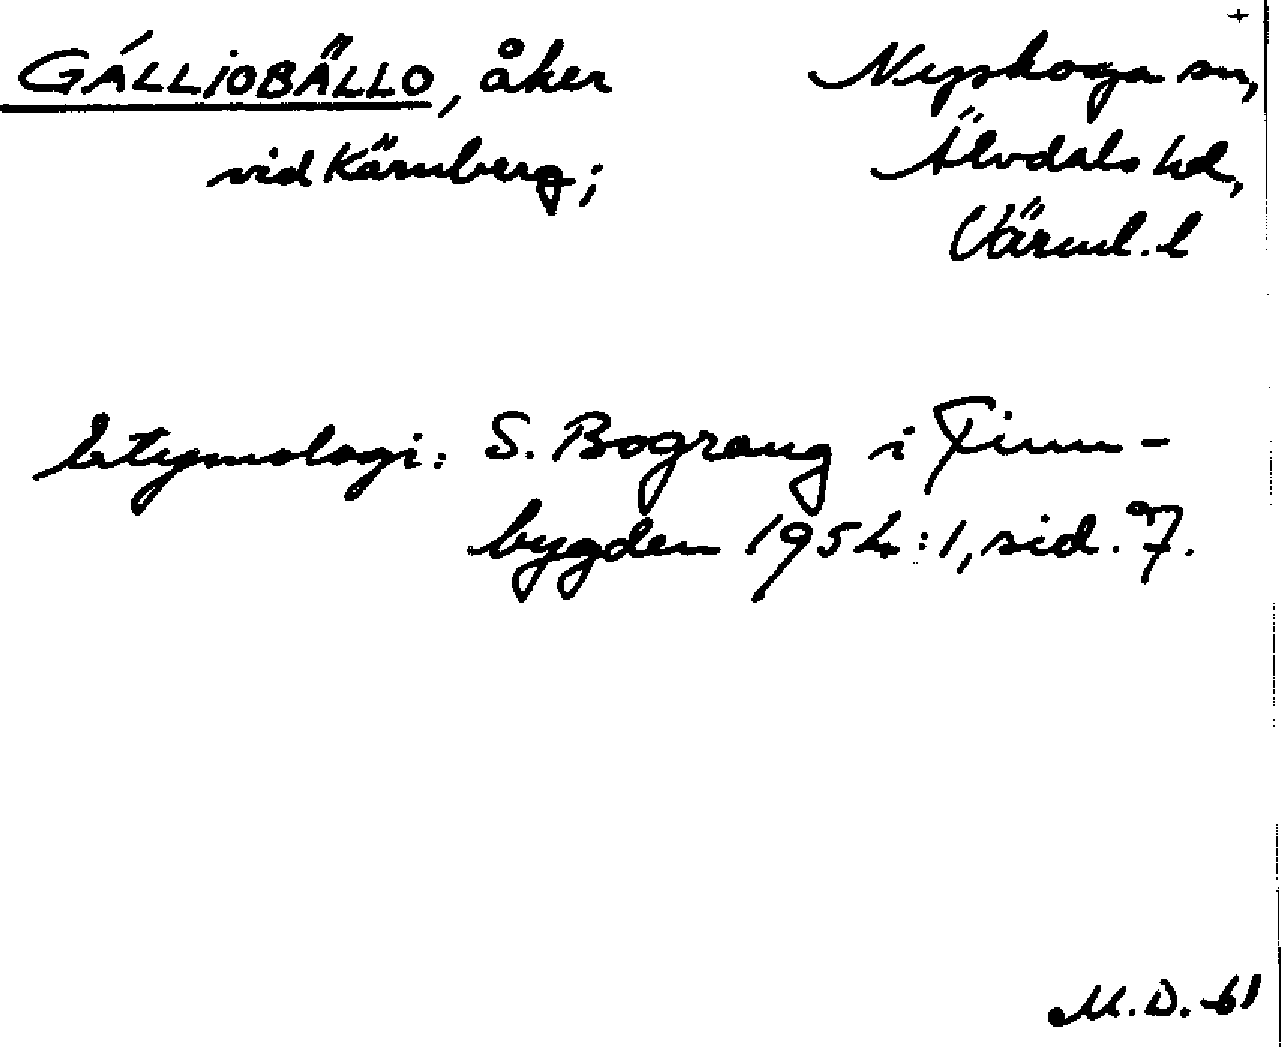 +
GÁLLIOBÄLLO, åker Nyskoga sn,
vid Kärnberg; Älvdals hd,
Värml. l
Etymologi: S. Bograng i Finn-
bygden 1954:1, sid. 7.
M.D. 61